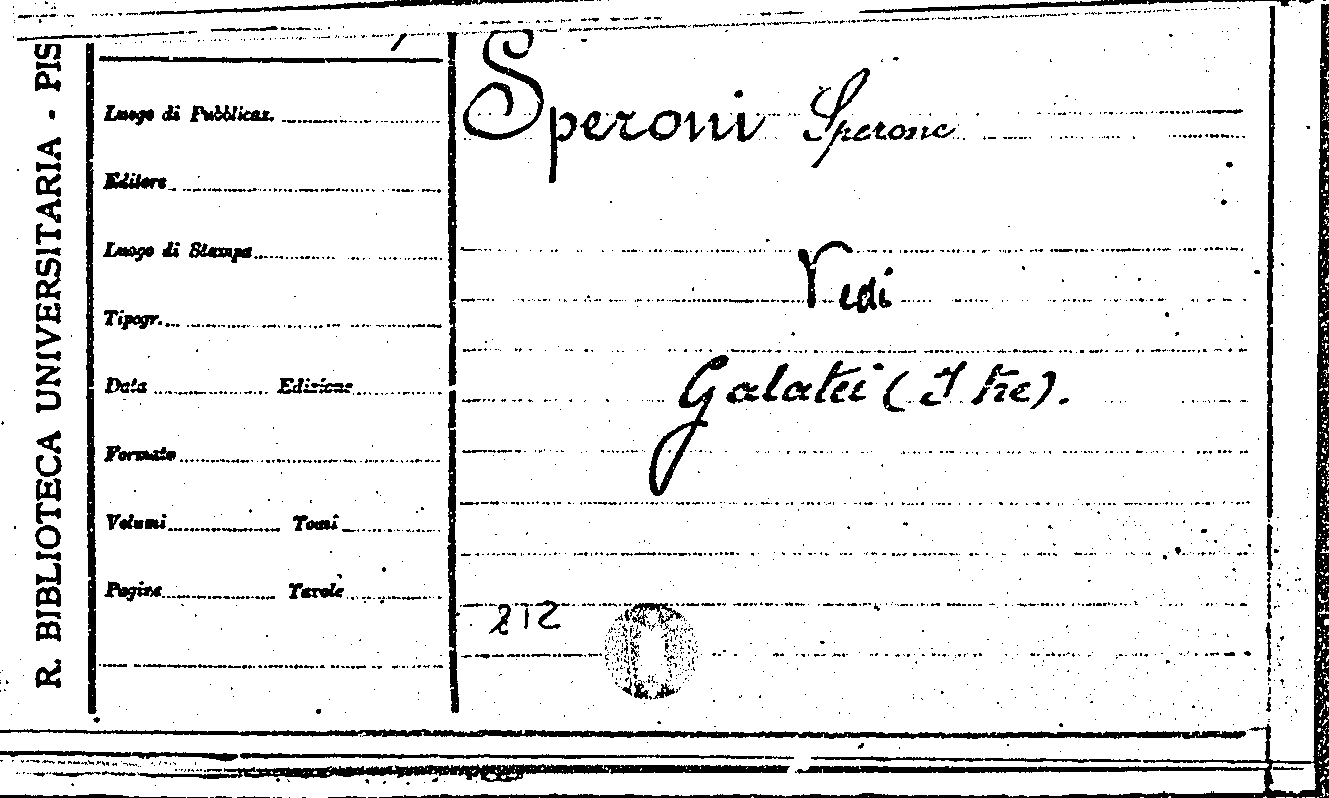 R. BIBLIOTECA UNIVERSITARIA - PIS
Luogo di Pubblicaz.
Editore
Luogo di Stampa
Tipogr.
Data Edizione
Formato
Volumi Tomi
Pagine Tavole
Speroni Sperone
Vedi
Galatei (I tre).
212